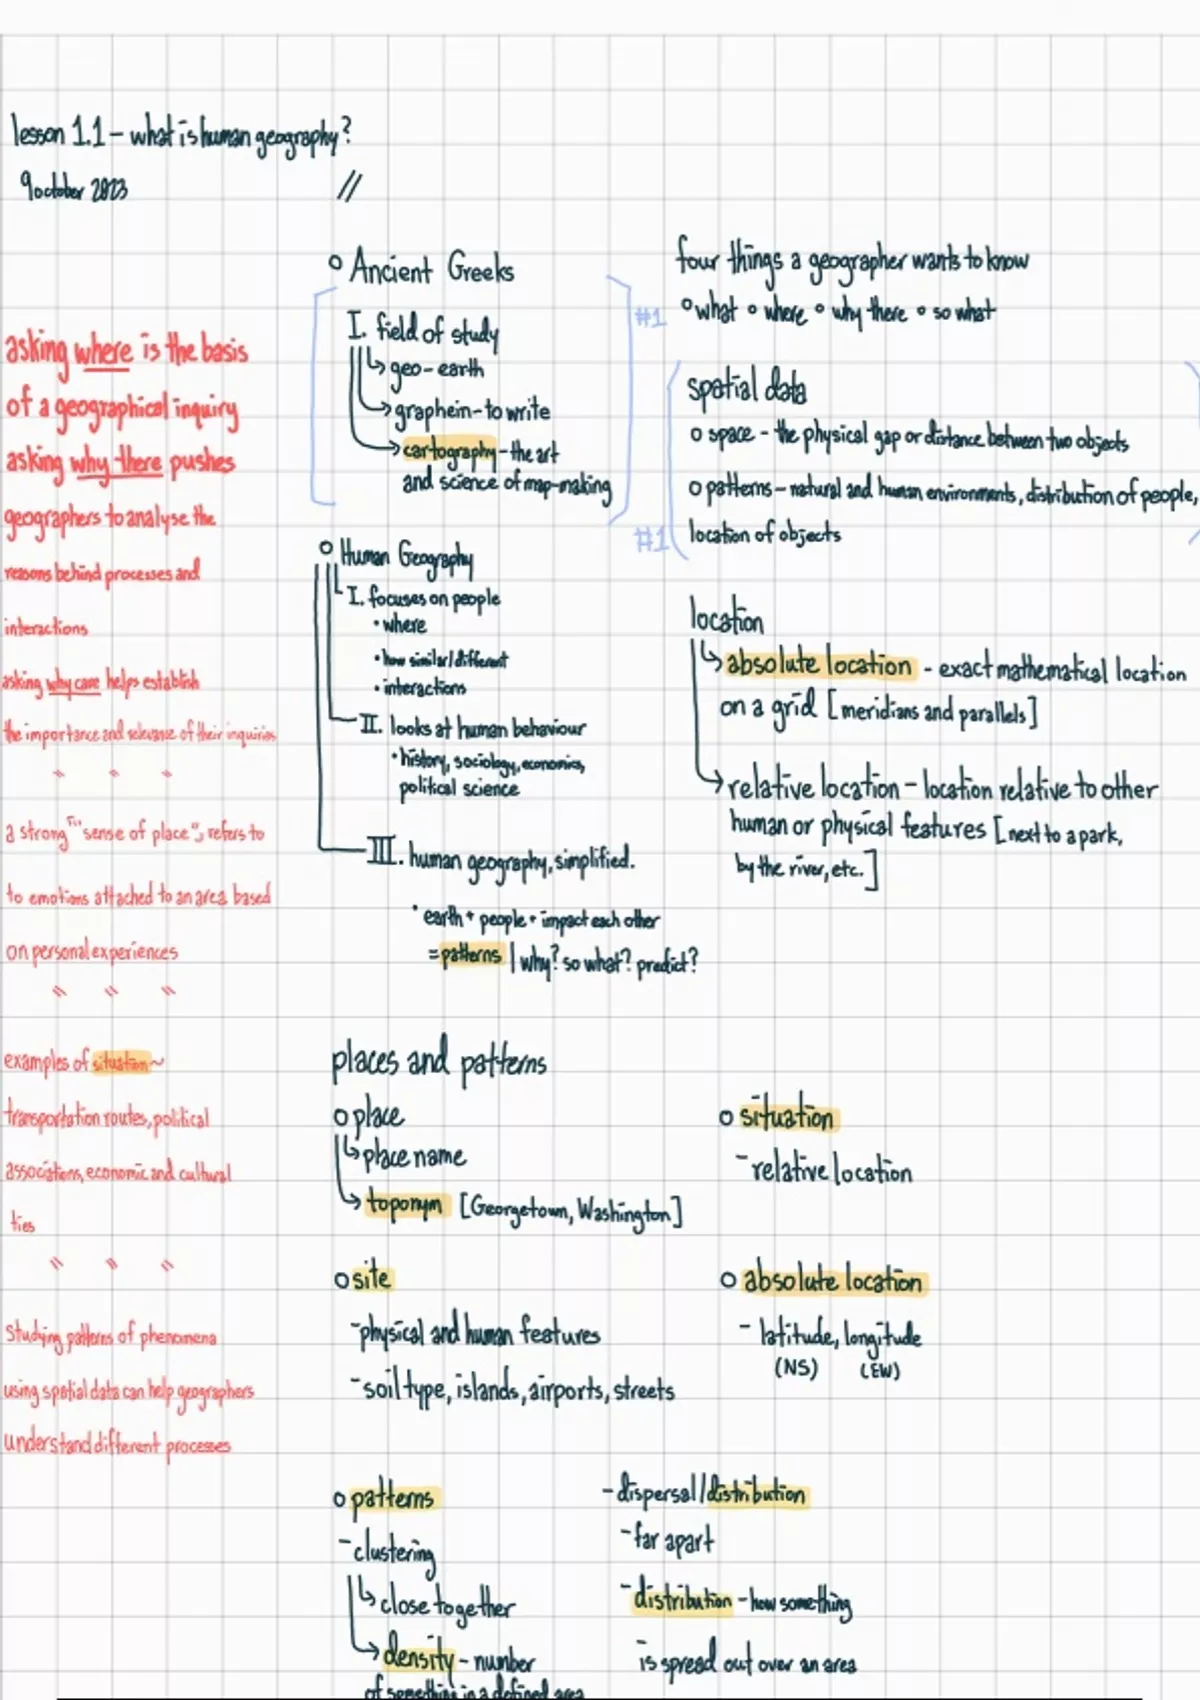 lesson 1.1 - what is human geography?
9 october 2023 //
asking where is the basis
of a geographical inquiry
asking why there pushes
geographers to analyse the
reasons behind processes and
interactions
asking why care helps establish
the importance and relevance of their inquiries
" " "
a strong "sense of place", refers to
to emotions attached to an area based
on personal experiences
" " "
examples of situation ~
transportation routes, political
associations, economic and cultural
ties
" " "
studying patterns of phenomena
using spatial data can help geographers
understand different processes
o Ancient Greeks
I. field of study
↳ geo - earth
↳ graphein - to write
↳ cartography - the art
and science of map-making
#1
o Human Geography
I. focuses on people
• where
• how similar/different
• interactions
II. looks at human behaviour
• history, sociology, economics,
political science
III. human geography, simplified.
• earth + people + impact each other
= patterns | why? so what? predict?
four things a geographer wants to know
o what o where o why there o so what
spatial data
o space - the physical gap or distance between two objects
o patterns - natural and human environments, distribution of people,
location of objects
#1
location
↳ absolute location - exact mathematical location
on a grid [meridians and parallels]
↳ relative location - location relative to other
human or physical features [next to a park,
by the river, etc.]
places and patterns
o place
↳ place name
↳ toponym [Georgetown, Washington]
o site
- physical and human features
- soil type, islands, airports, streets
o situation
- relative location
o absolute location
- latitude, longitude
(NS) (EW)
o patterns
- clustering
↳ close together
↳ density - number
of something in a defined area
- dispersal/distribution
- far apart
- distribution - how something
is spread out over an area